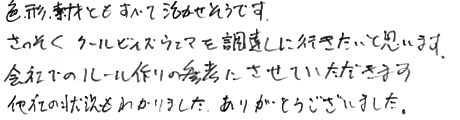 色、形、素材ともすべて活かせそうです。
さっそくクールビズウェアを調達しに行きたいと思います。
会社でのルール作りの参考にさせていただきます
他社の状況もわかりました。ありがとうございました。